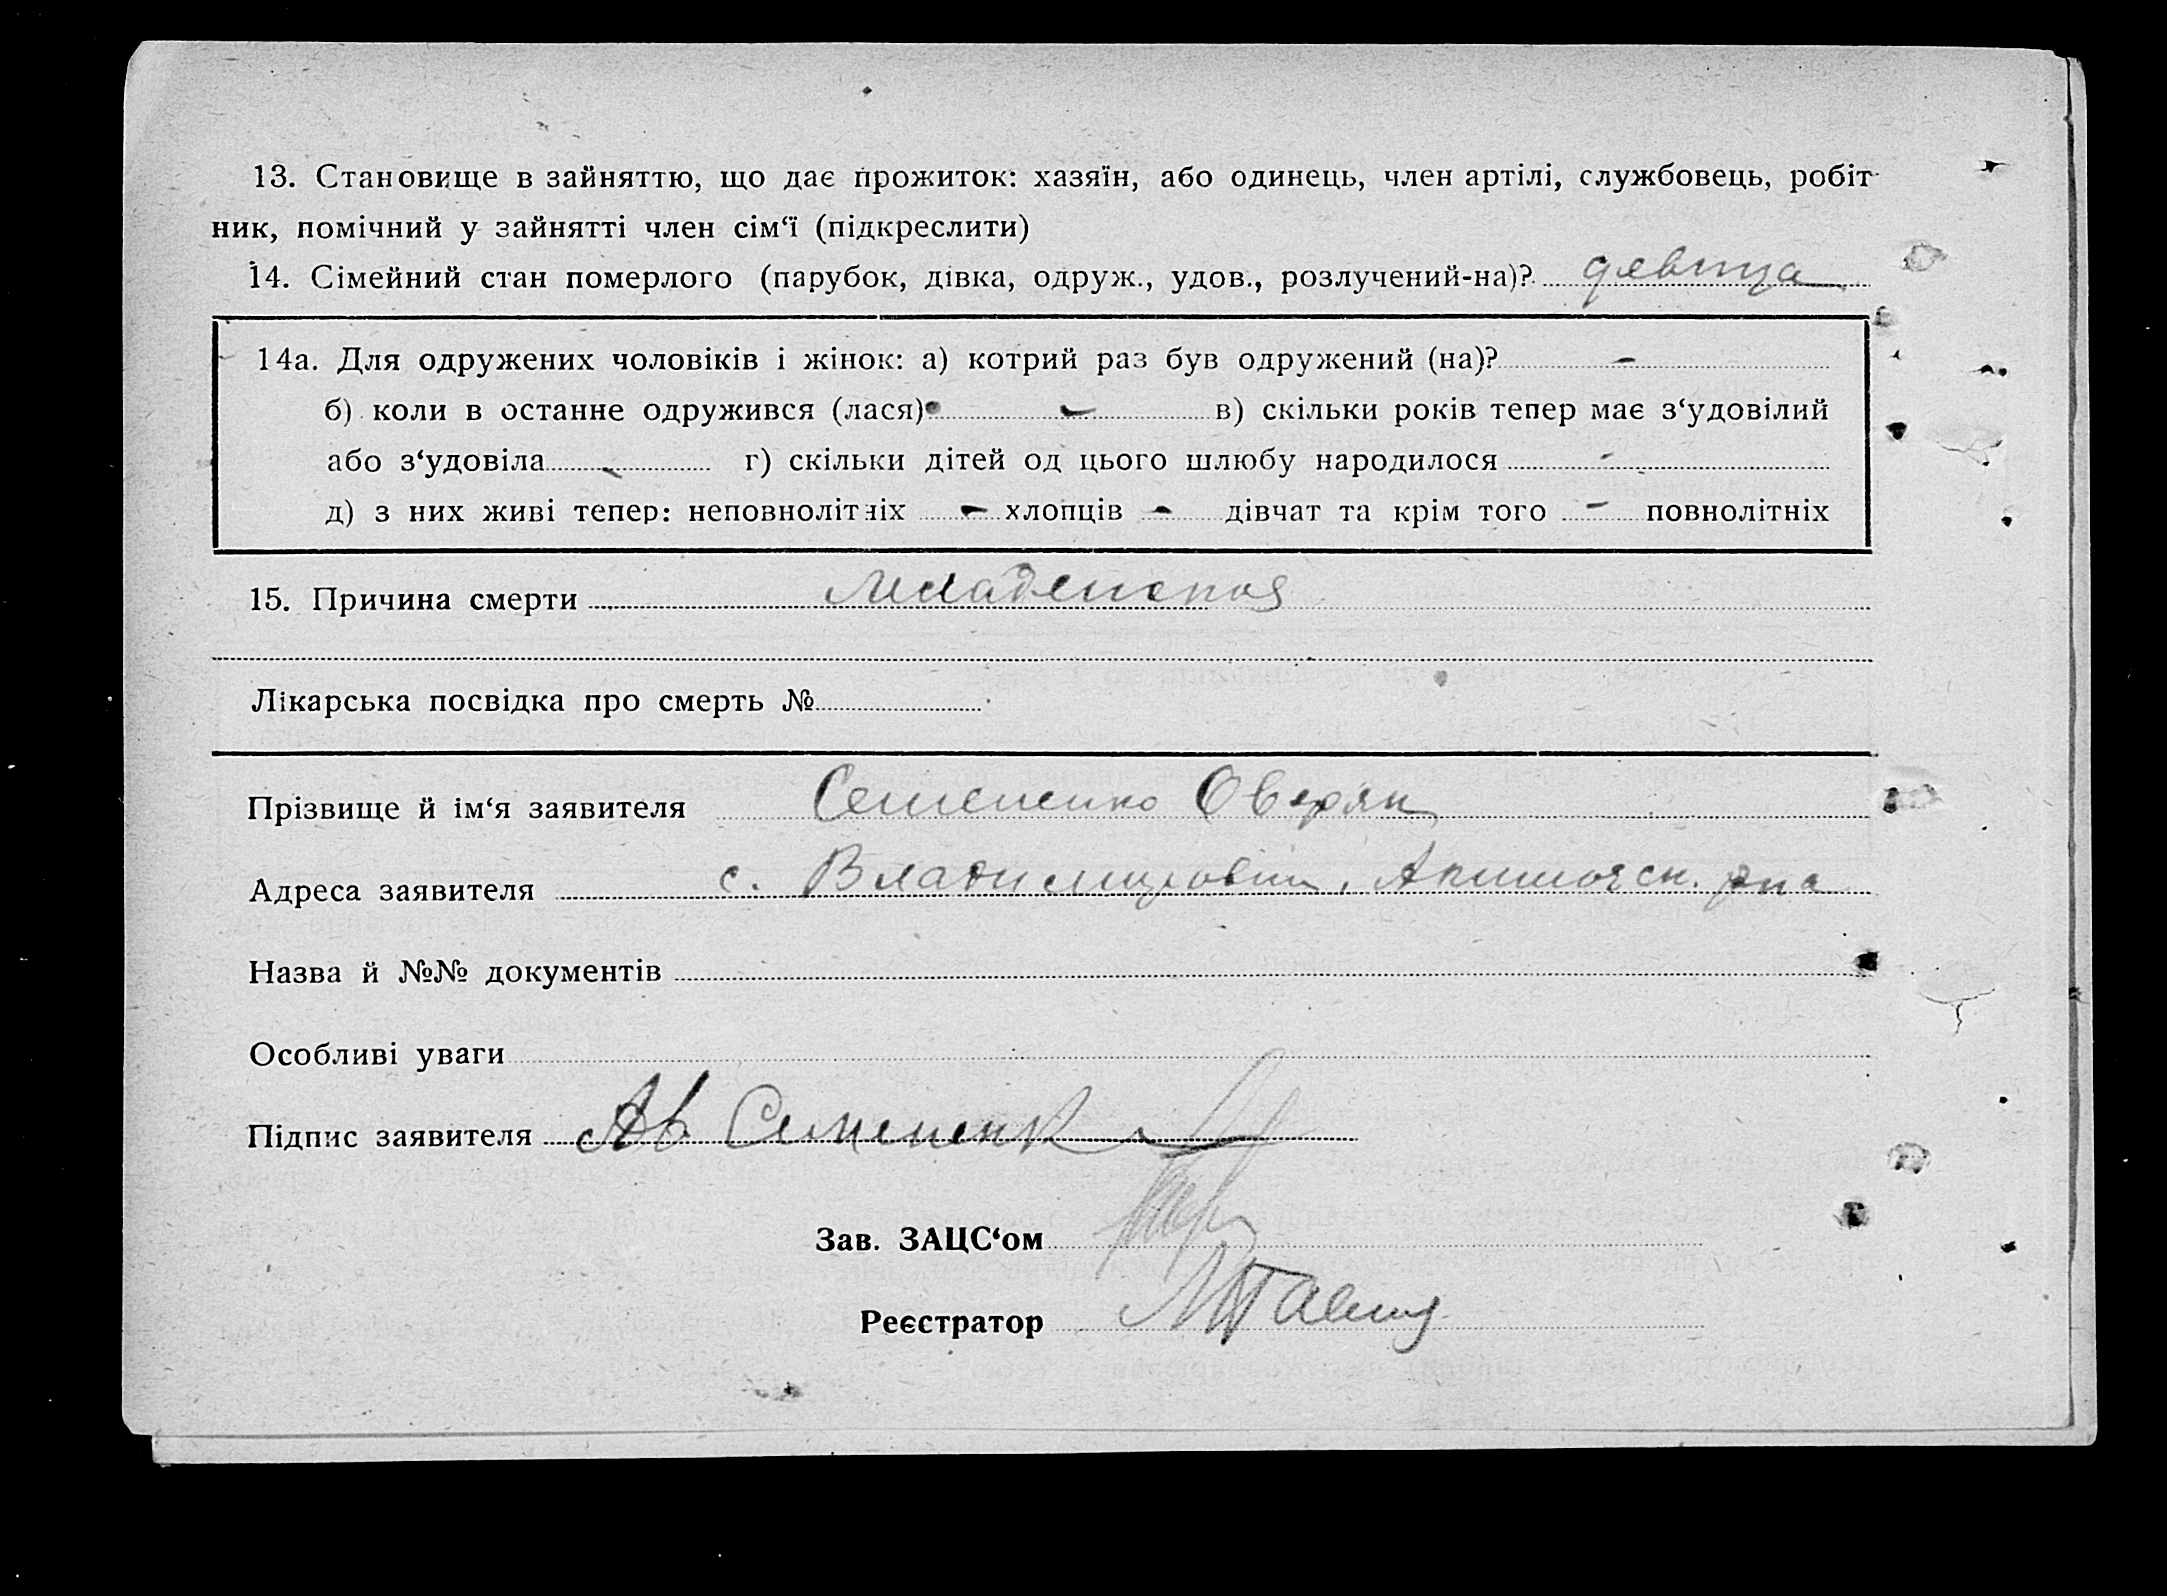 13. Становище в зайняттю, що дає прожиток: хазяїн, або одинець, член артілі, службовець, робіт-
ник, помічний у зайнятті член сім‘ї (підкреслити)
14. Сімейний стан померлого (парубок, дівка, одруж., удов., розлучений-на)? девица
14а. Для одружених чоловіків і жінок: а) котрий раз був одружений (на)? -
б) коли в останне одружився (лася) - в) скільки років тепер має з‘удовілий
або з‘удовіла - г) скільки дітей од цього шлюбу народилося -
д) з них живі тепер: неповнолітніх - хлопців - дівчат та крім того - повнолітніх
15. Причина смерти младенская
Лікарська посвідка про смерть №
Прізвище й ім‘я заявителя Семененко Оверян
Адреса заявителя с. Владимировка, Акимовск. р-на
Назва й №№ документів
Особливі уваги
Підпис заявителя Ав Семененк
Зав. ЗАЦС‘ом
Реєстратор